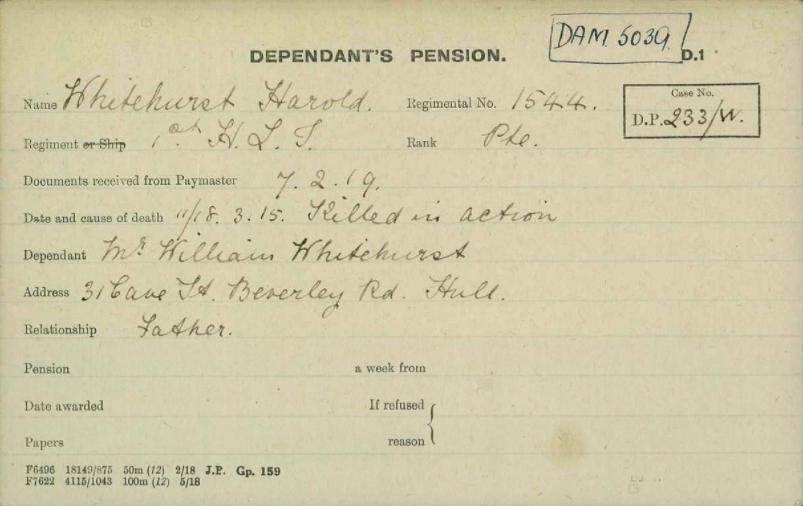 DAM 5039.
DEPENDANT'S PENSION. D.1
Name Whitehurst Harold. Regimental No. 1544.
Case No.
D.P. 233/W.
Regiment or Ship 1st H. L. I. Rank Pte.
Documents received from Paymaster 7. 2. 19.
Date and cause of death 11/18. 3. 15. Killed in action
Dependant Mr William Whitehurst
Address 31 Cave St. Beverley Rd. Hull.
Relationship Father.
Pension a week from
Date awarded If refused
Papers reason
F6496 18149/875 50m (12) 2/18 J.P. Gp. 159
F7622 4115/1043 100m (12) 5/18